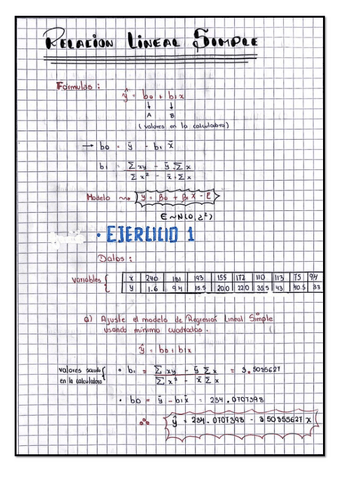 RELACION LINEAL SIMPLE
Formulas :
ŷ = b0 + b1x
↓ ↓
A B
(valores en la calculadora)
→ b0 = ȳ - b1 x̄
b1 = (Σxy - ȳ Σx) / (Σx² - x̄ Σx)
Modelo
E ~ N(0,
• EJERCICIO 1
Datos :
Variables { x 240 181 193 155 172 110 113 75 94
y 1.6 9.4 15.5 20.0 22.0 35.5 43 40.5 33
a) Ajuste el modelo de Regresión Lineal Simple
usando mínimo cuadrados.
ŷ = b0 + b1x
valores
en la calculadora { • b1 = (Σxy - ȳ Σx) / (Σx² - x̄ Σx) =
• b0 = ȳ - b1x̄ = 234.0707393
∴ ŷ = 234.0707393 -